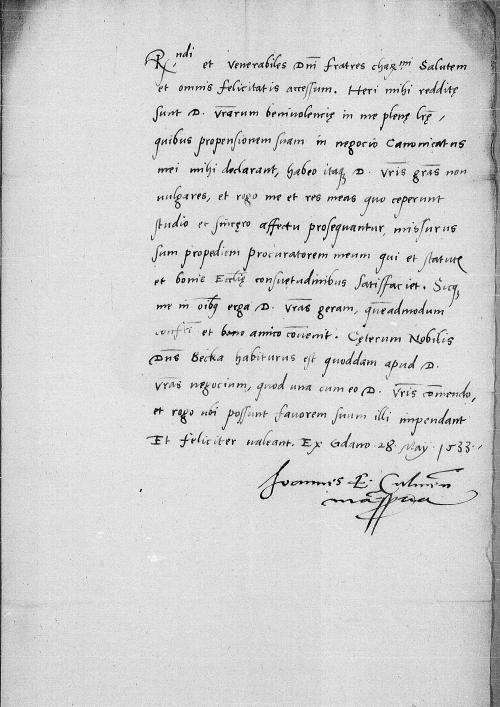 R<sup>ndi</sup> et venerabiles Dnī fratres char<sup>mi</sup> Salutem
et omnis felicitatis accessum. Heri mihi redditę
sunt D. vr̄arum benivolencię in me plenę lr̄ę,
quibus propensionem suam in negocio Canonicatus
mei mihi declarant, habeo itaq; D. vr̄is gr̄as non
vulgares, et rogo me et res meas quo ceperunt
studio et sincero affectu prosequantur, missurus
sum propediem procuratorem meum qui et statutę
et bonis Eccl̄ię consuetudinibus satisfaciet. Sicq;
me in oībq; erga D. vr̄as geram, quēadmodum
confrī et bono amico cōvenit. Cęterum Nobilis
Dn̄us Becka habiturus est quoddam apud D.
vr̄as negocium, quod una cum eo D. vr̄is cōmendo,
et rogo ubi possunt favorem suum illi impendant
Et feliciter valeant. Ex Gdano 28 Maÿ 1533.
Joannes E. Culmēn